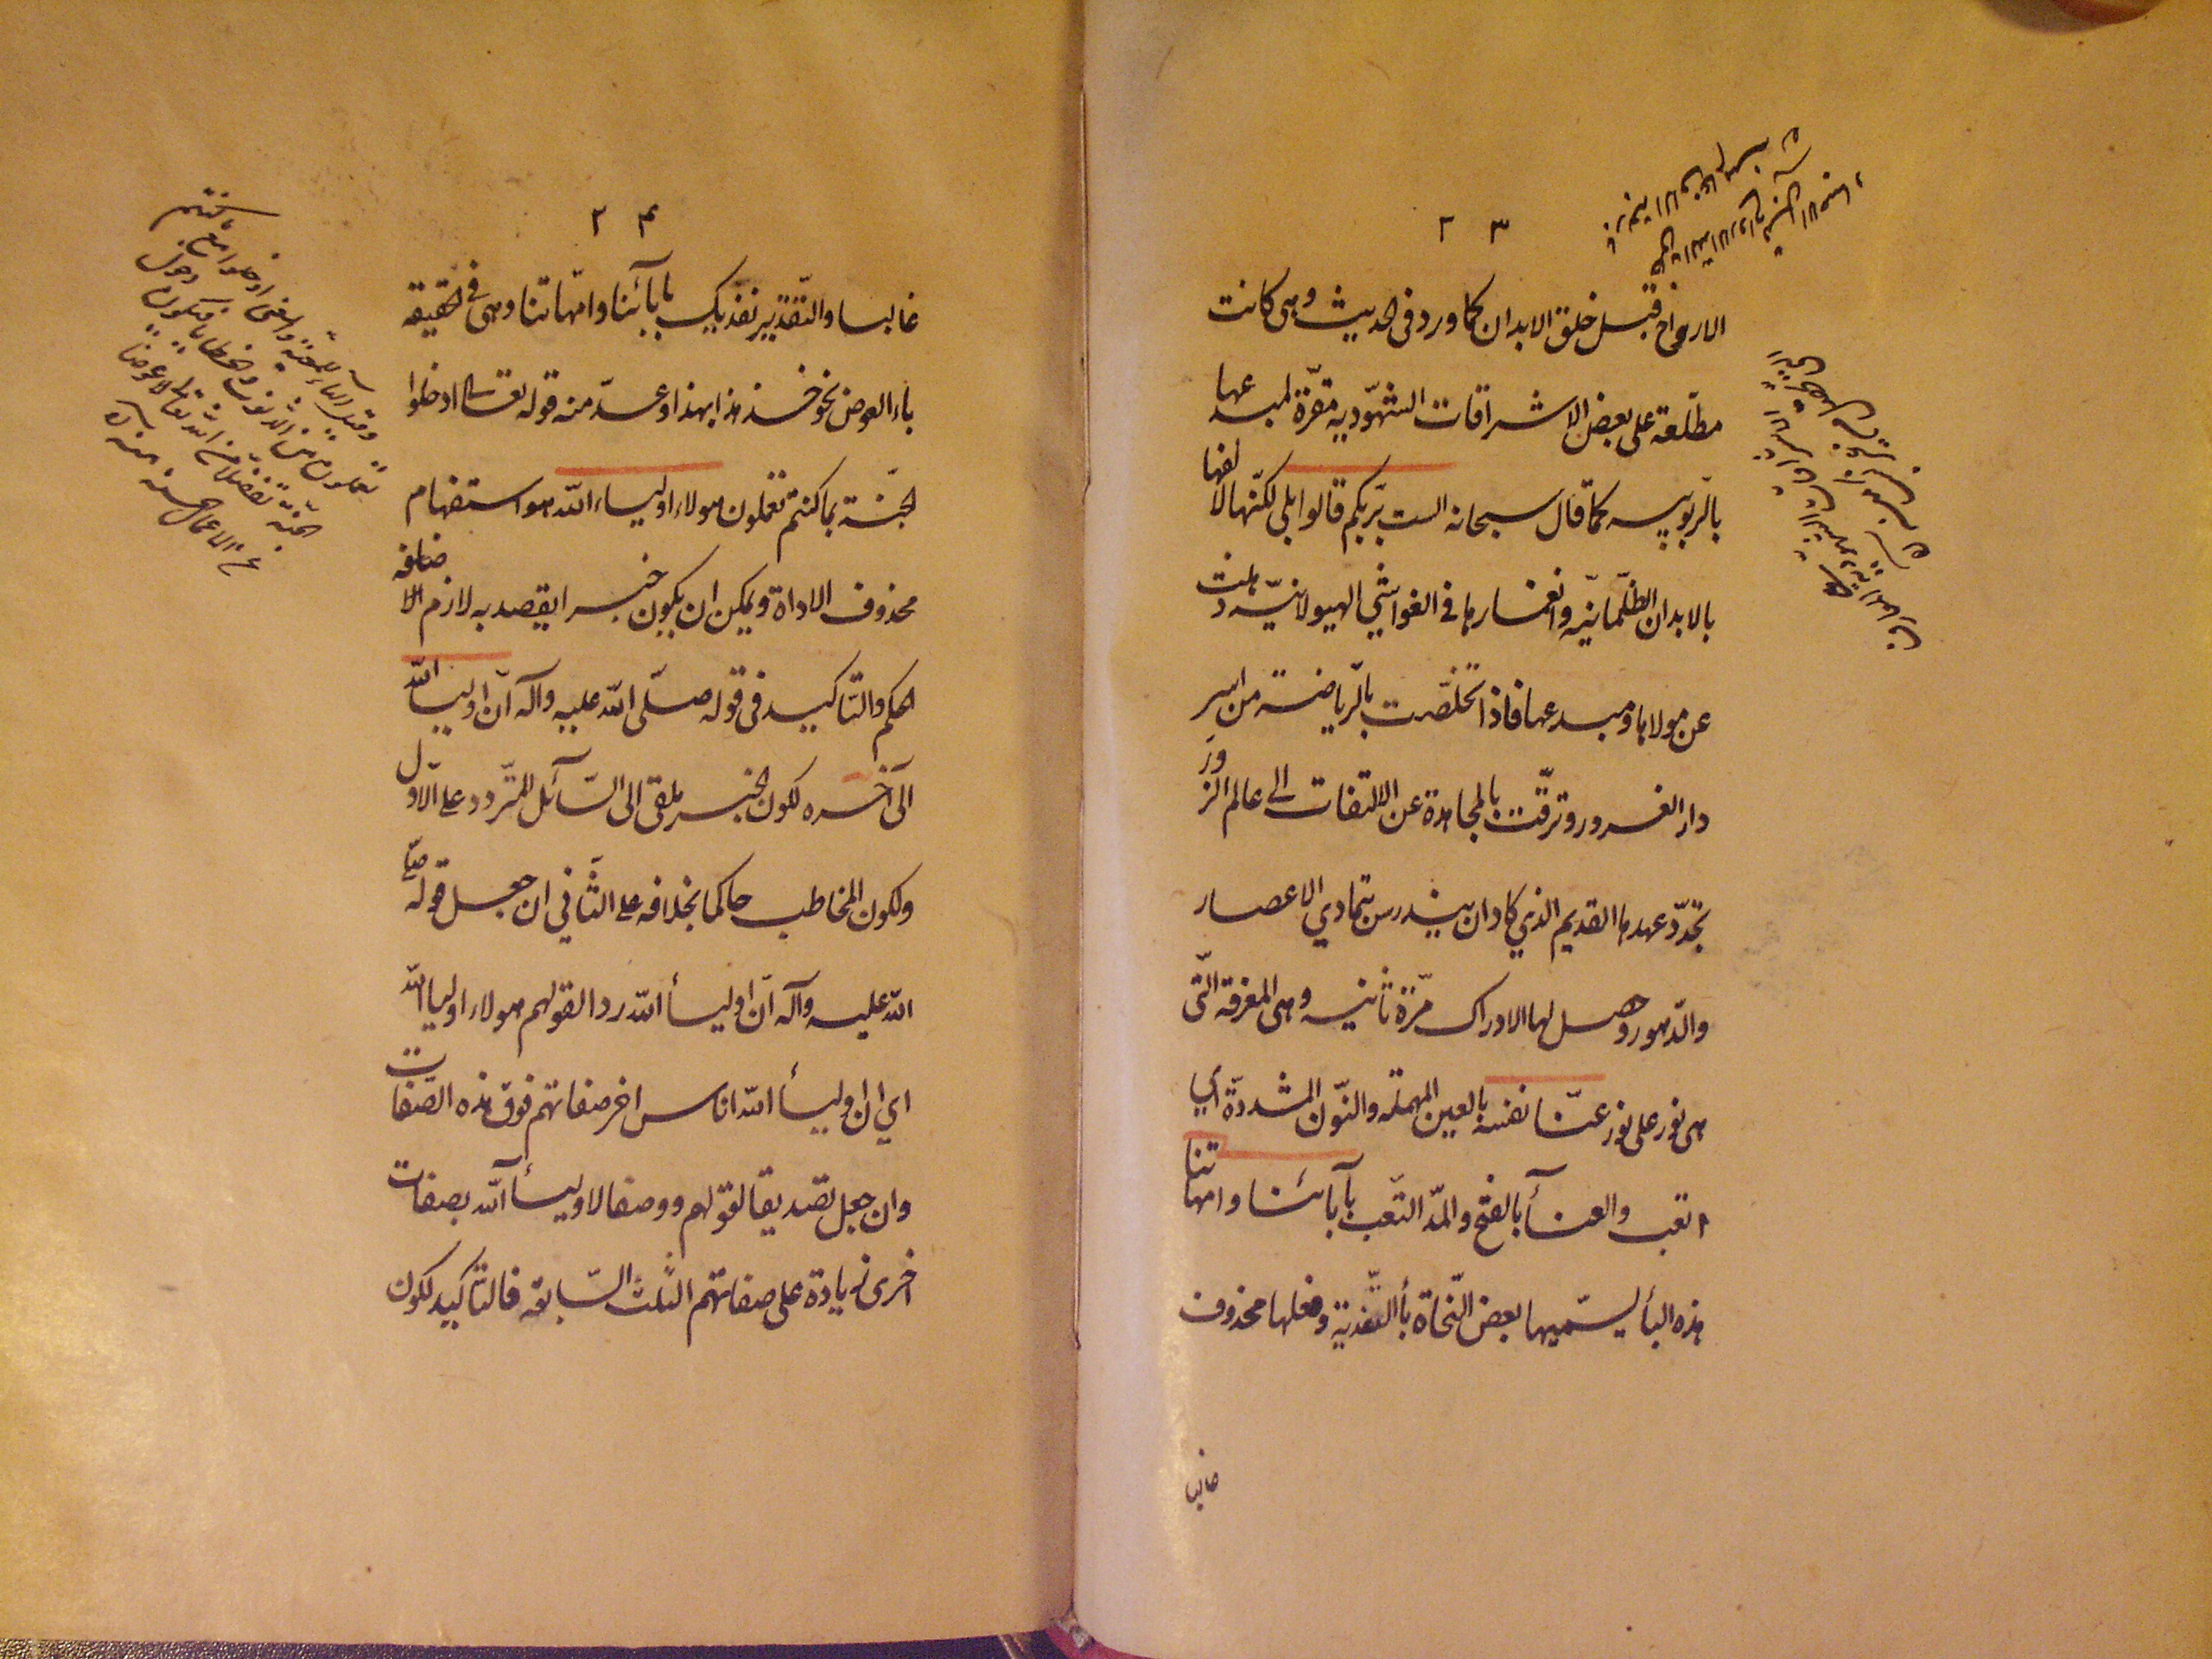 ٢٣
الارواح قبل خلق الابدان كما ورد فى الحديث وهى كانت
مطّلعة على بعض الاشراقات الشهّوديه مقرّة لمبدعها
بالرّبوبيه كما قال سبحانه الست بربّكم قالوا بلى لكنّها لالفها
بالابدان الظلّمانيّه وانغمارها فى الغواشي الهيولانيّه ذهلت
عن مولاها ومبدعها فاذا تخلّصت بالرّياضة من اسر
دار الغرور وترقّت بالمجاهدة عن الالتفات الى عالم الزور
تجدّد عهدها القديم الذي كاد ان يندرس بتمادي الاعصار
والدّهور وحصل لها الادراك مرّة ثانيه وهى المعرفة الّتى
هى نور على نور عنّا نفسه بالعين المهملة والنّون المشددّة اي
اتعب والعنآء بالفتح والمدّ التّعب بآبائنا وامهاتنا
هذه البأ يسمّيها بعض النّحاة بأ التّفدية وفعلها محذوف
غالبا
٢٤
غالبا والتّقدير نفديك بابآئنا وامّهاتنا وهى فى الحقيقه
باء العوض نحو خذ هذا بهذا وعدّ منه قوله تعالى ادخلوا
الجنّة بما كنتم تعملون هولاء اولياء اللّه هو استفهام
محذوف الاداة ويمكن ان يكون خبرا يقصد به لازم الاضافه
الحكم والتّاكيد فى قوله صلّى اللّه عليه وآله انّ اولياء اللّه
الى آخره لكون الخبر ملقى الى السّآئل المتّردد على الاّول
ولكون المخاطب حاكما بخلافه على الثّاني ان جعل قوله صلّى
اللّه عليه وآله انّ اوليأ اللّه ردا لقولهم هولاء اوليا اللّه
اي ان اوليأ اللّه اناس اخر صفاتهم فوق هذه الصّفات
وان جعل تصديقا لقولهم ووصفا لاوليأ اللّه بصفات
اخرى زيادة على صفاتهم الثّلث السّابقه فالتاكيد لكون